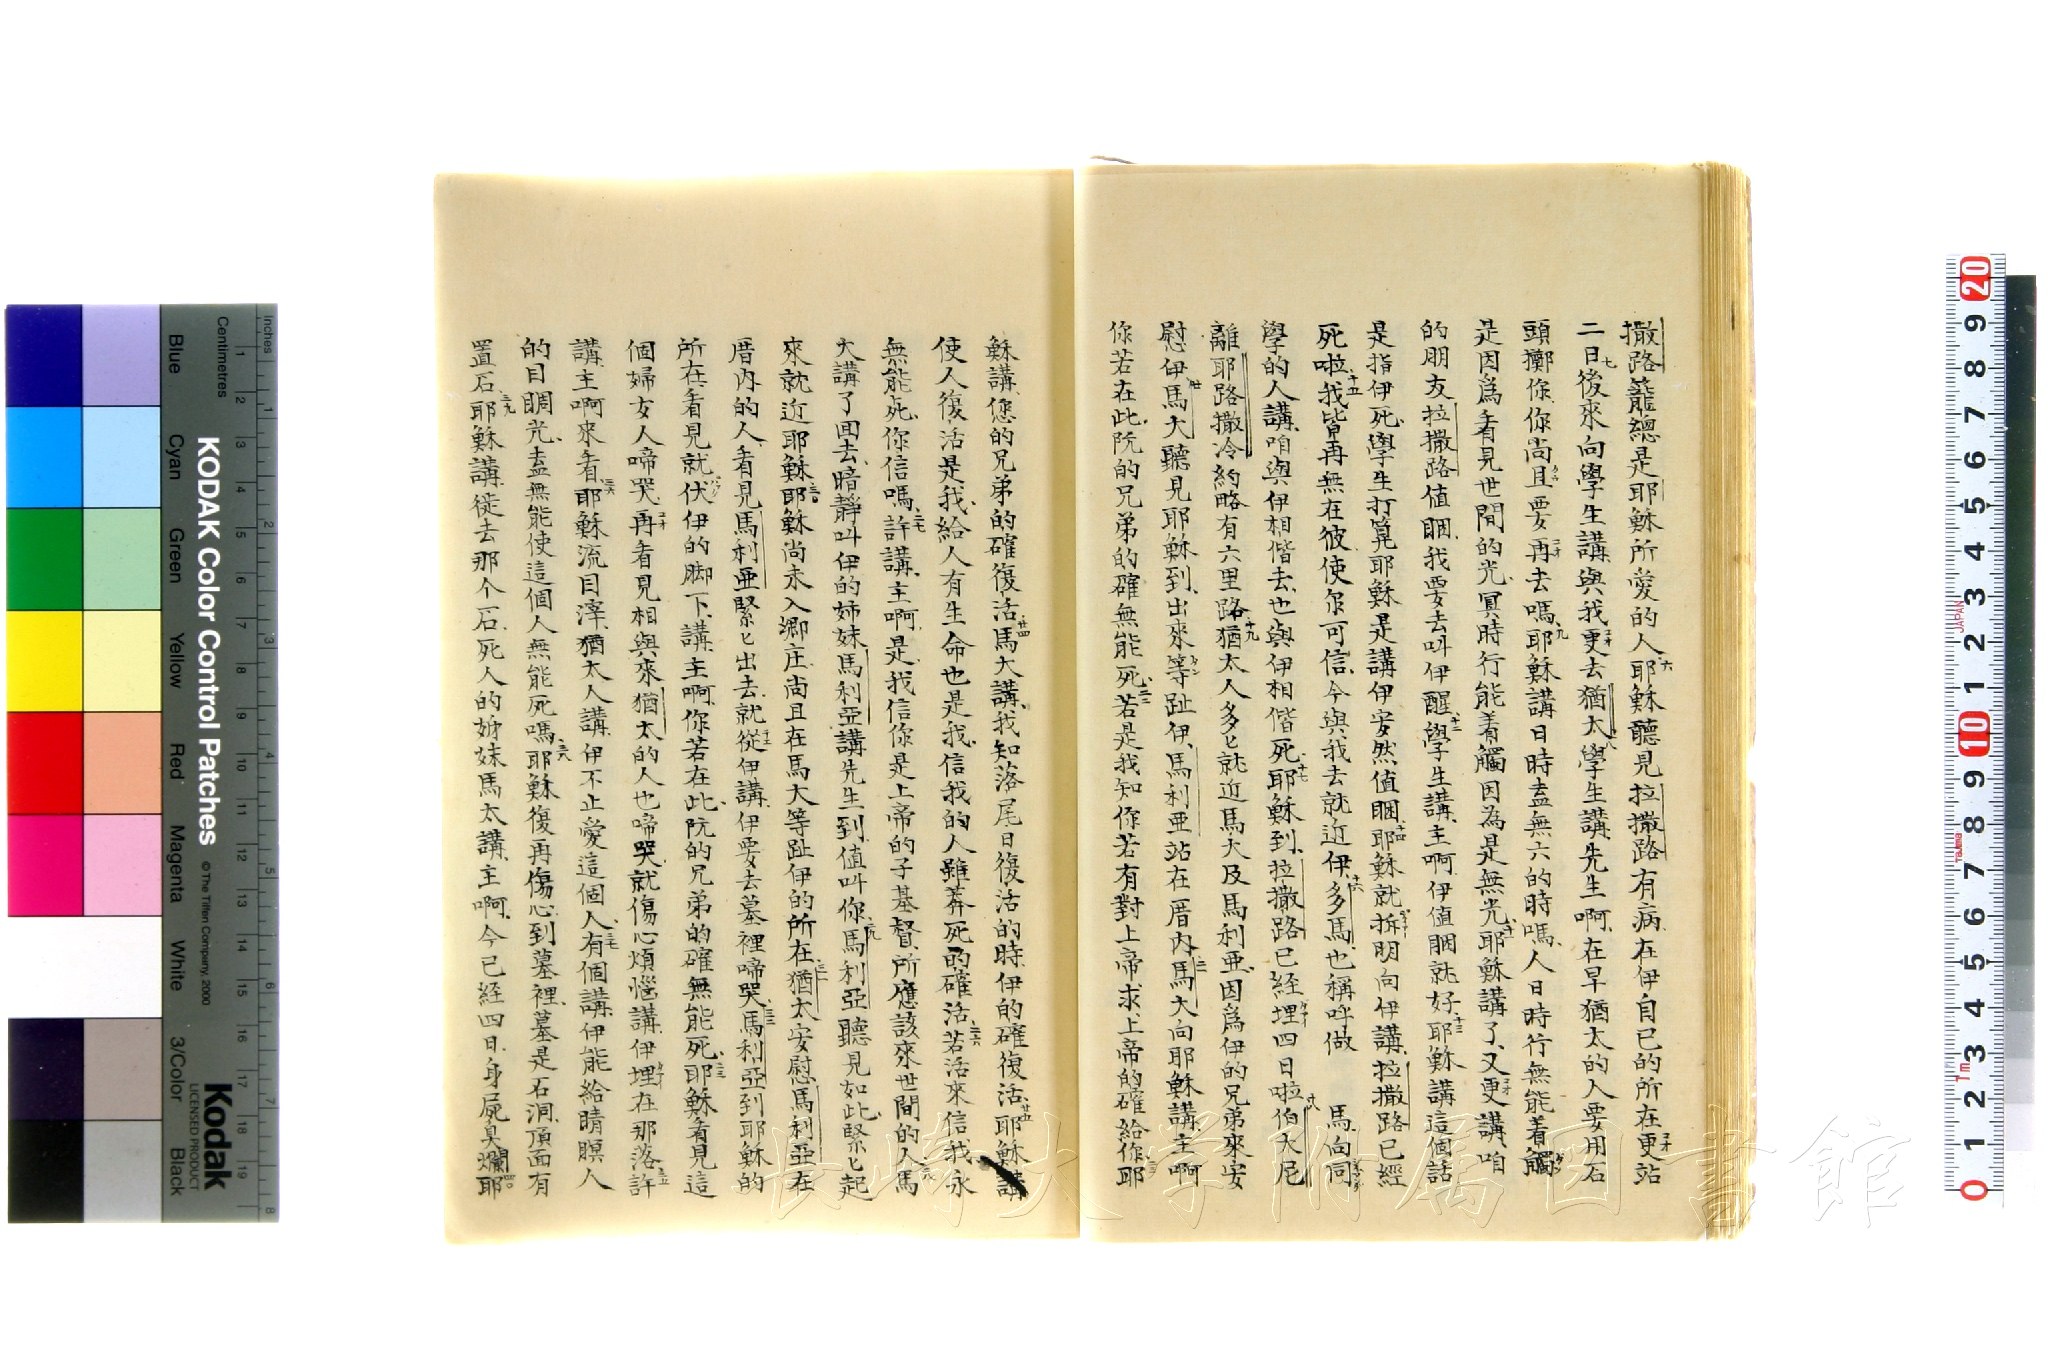 撒路籠總是耶穌所愛的人六耶穌聽見拉撒路有病在伊自已的所在更站
二日七後來向學生講與我更去猶太八學生講先生啊在早猶太的人要用石
頭擲你你尚且要再去嗎九耶穌講日時盍無六的時嗎人日時行無能着觸
是因爲看見世間的光冥時行能着觸因為是無光耶穌講了又更講咱
的朋友拉撒路值眠我要去叫伊醒十二學生講主啊伊值眠就好十三耶穌講這個話
是指伊死學生打算耶穌是講伊安然值眠十四耶穌就拆明向伊講拉撒路已經
死啦十五我皆再無在彼使你可信今與我去就近伊十六多馬也稱呼做 馬向同
學的人講咱與伊相偕去也與伊相偕死十七耶穌到拉撒路已經埋四日啦十八伯大尼
離耶路撒冷約略有六里路十九猶太人多匕就近馬大及馬利亜因爲伊的兄弟來安
慰伊廿馬大聽見耶穌到出來等趾伊馬利亜站在厝内廿一馬大向耶穌講主啊
你若在此阮的兄弟的確無能死廿二若是我知你若有對上帝求上帝的確給你廿三耶
穌講您的兄弟的確復活廿四馬大講我知落尾日復活的時伊的確復活廿五耶穌講
使人復活是我給人有生命也是我信我的人雖莽死的確活廿六若活來信我永
無能死你信嗎廿七許講主啊是我信你是上帝的子基督所應該來世間的人廿八馬
大講了回去暗靜叫伊的姊妹馬利亞講先生到值叫你廿九馬利亞聽見如此緊匕起
來就近耶穌三十耶穌尚未入鄉庄尚且在馬大等趾伊的所在三一猶太安慰馬利亞在
厝内的人看見馬利亜緊匕出去就從伊講伊要去墓裡啼哭三二馬利亞到耶穌的
所在看見就伏伊的脚下講主啊你若在此阮的兄弟的確無能死三三耶穌看見這
個婦女人啼哭再看見相與來猶太的人也啼哭就傷心煩惱講伊埋在那落三五許
講主啊來看三六耶穌流目滓猶太人講伊不止愛這個人三七有個講伊能給睛瞑人
的目睭光盍無能使這個人無能死嗎三八耶穌復再傷心到墓裡墓是石洞頂面有
置石三九耶穌講徙去那个石死人的姊妹馬太講主啊今已經四日身屍臭爛四〇耶
長崎大学附属図書館
KODAK Color Control Patches
© The Tiffen Company, 2000
Kodak
LICENSED PRODUCT
Inches
Centimetres
Blue
Cyan
Green
Yellow
Red
Magenta
White
3/Color
Black
JAPAN